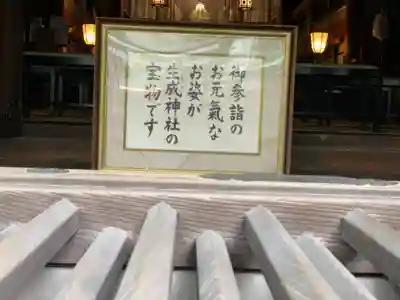 御參詣の
お元氣な
お姿が
生成神社の
宝物です